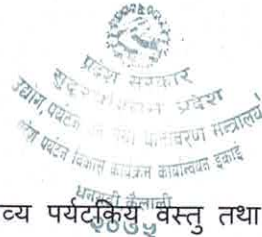 प्रदेश सरकार
सुदूरपश्चिम प्रदेश
उद्योग, पर्यटन वन तथा वातावरण मन्त्रालय
प्रदेश पर्यटन विकास कार्यक्रम कार्यान्वयन इकाई
धनगढी कैलाली
२०७५
व्य पर्यटकिय वस्तु तथा